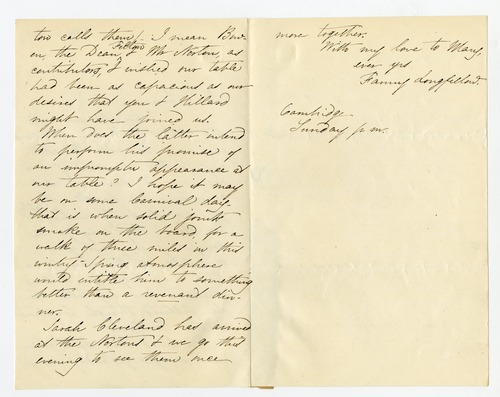 tow calls them! I mean
en, the Dean, Felton & Mr Norton, as
contributors, & wished our table
had been as capacious as our
desires that you & Hillard
might have joined us.
When does the latter intend
to perform his promise of
an impromptu appearance at
our table? I hope it may
be on some Carnival day –
that is when solid joints
smoke on the board, for a
walk of three miles in this
wintry-Spring atmosphere
would entitle him to something
better than a revenant din-
ner.
Sarah Cleveland has arrived
at the Nortons & we go this
evening to see them once
more together.
With my love to Mary,
ever yrs
Fanny Longfellow.
Cambridge
Sunday p.m.